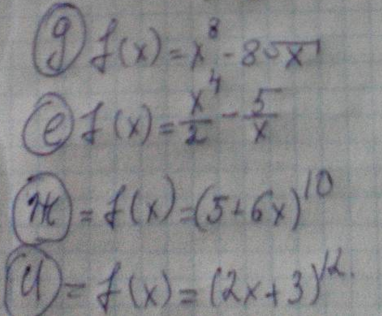 д f(x) = x⁸ - 8√x
е f(x) = x⁴/2 - 5/x
ж = f(x) = (5+6x)¹⁰
и = f(x) = (2x+3)¹².